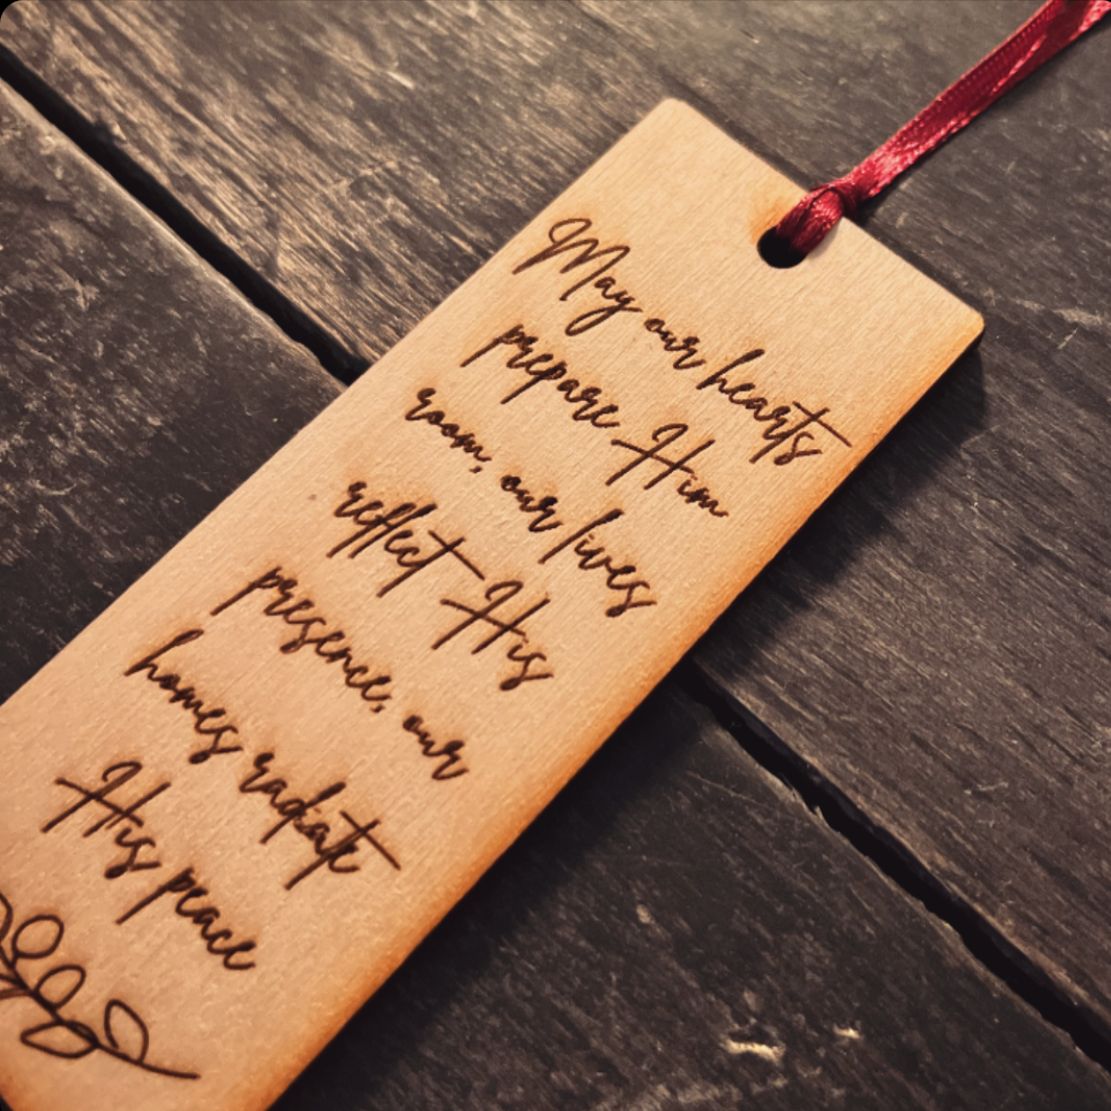 May our hearts
prepare Him
room, our lives
reflect His
presence, our
homes radiate
His peace